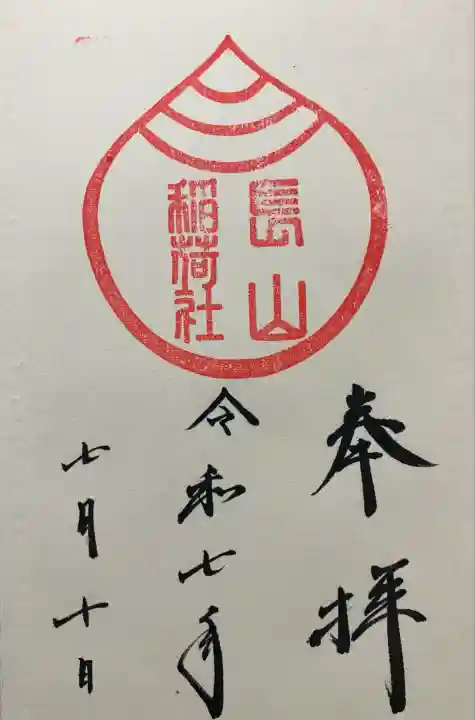 長山
稲荷社
奉拝
令和七年
七月十日